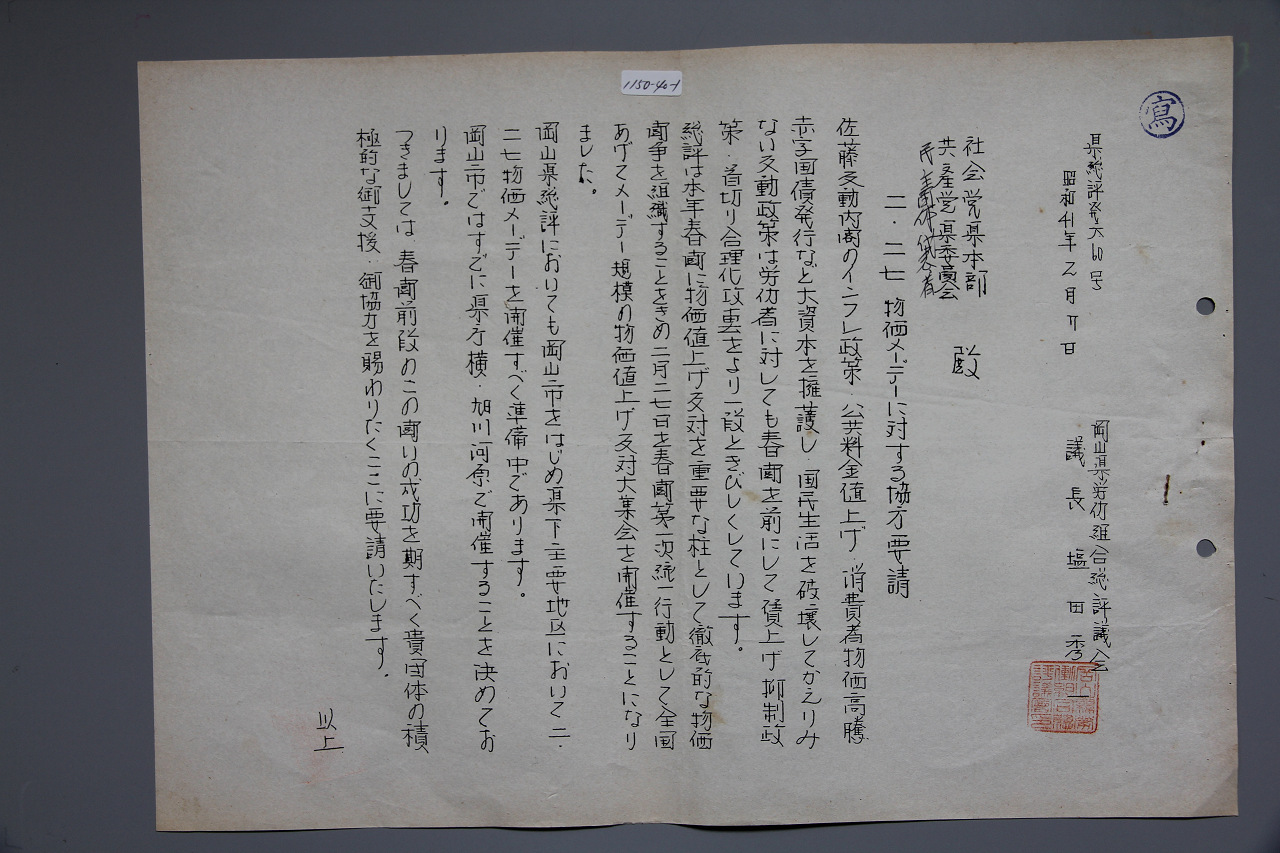 1150-40-1
寫
県総評発六60号
昭和41年2月11日
岡山県労仂組合総評議会
議長 塩田秀一
社会党県本部
共産党県委員会
民主団体代表者
殿
二・二七 物価メーデーに対する協力要請
佐藤反動内閣のインフレ政策・公共料金値上げ・消費者物価高騰
赤字国債発行など大資本を擁護し・国民生活を破壊してかえりみ
ない反動政策は労仂者に対しても春闘を前にして賃上げ抑制政
策・首切り合理化攻撃をより一段ときびしくしています。
総評は本年春闘に物価値上げ反対を重要な柱として徹底的な物価
闘争を組織することをきめ二月二七日を春闘第一次統一行動として全国
あげてメーデー規模の物価値上げ反対大集会を開催することになり
ました。
岡山県総評においても岡山市をはじめ県下主要地区において二・
二七物価メーデーを開催すべく準備中であります。
岡山市ではすでに県庁横・旭川河原で開催することを決めてお
ります。
つきましては、春闘前段のこの闘いの成功を期すべく貴団体の積
極的な御支援・御協力を賜わりたくここに要請いたします。
以上